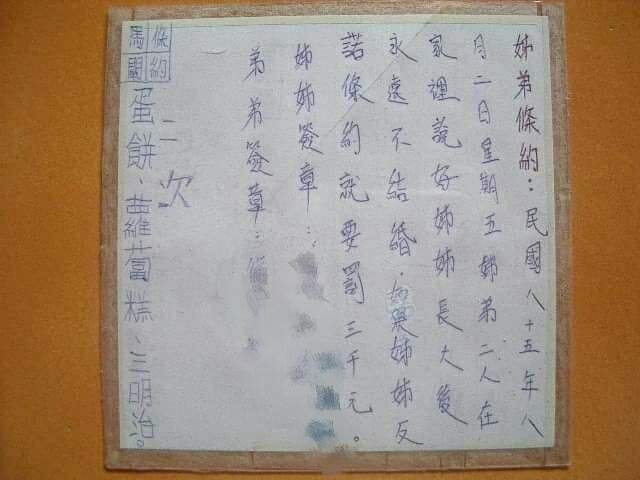 姊弟條約：民國八十五年八
月二日星期五姊弟二人在
家裡說好姊姊長大後
永遠不結婚．如果姊姊反
諾條約就要罰三千元。
姊姊簽章：
弟弟簽章：
二次
蛋餅、蘿蔔糕、三明治。
條約
馬關